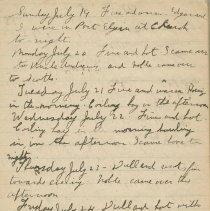 Sunday July 19 Fine and warm Edgar and
I were in Port Elgin at Church
to night.
Monday July 20 Fine and hot I came over
to Uncle and Noble came over
to
Tuesday July 21 Fine and warm
in the morning. in the afternoon
Wednesday July 22 Fine and hot
hay in morning hauling
in in the afternoon I came home to
night
Thursday July 23 - Dull and wet
towards evening. Noble came over this
afternoon
Friday July 24 Dull and hot with